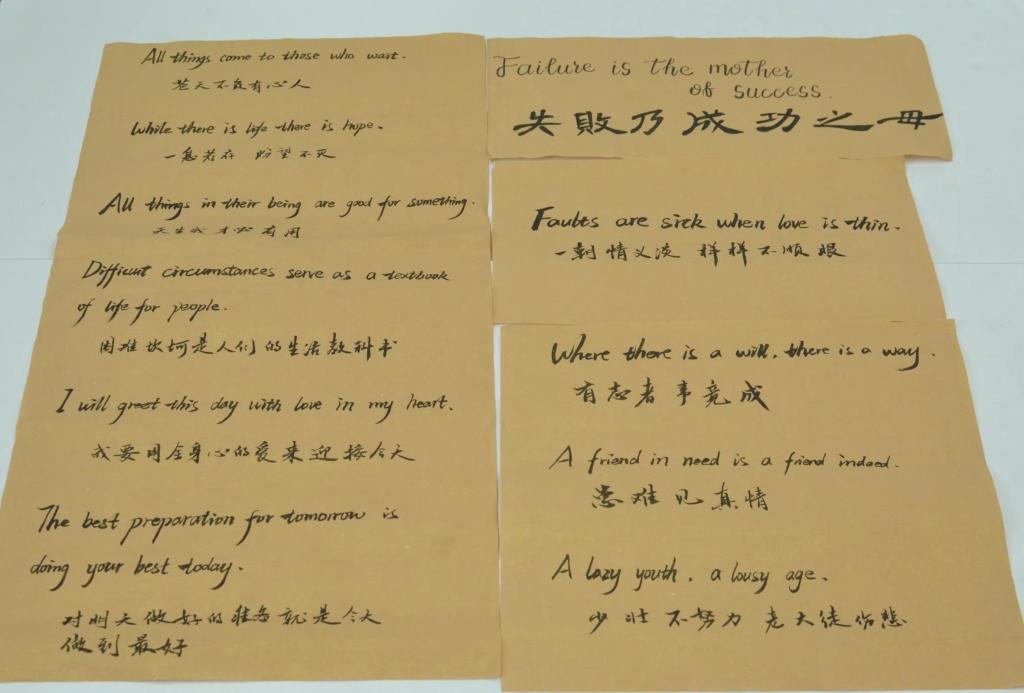 All things come to those who wait.
苍天不负有心人
While there is life there is hope.
一息若存 盼望不灭
All things in their being are good for something.
天生我才必有用
Difficult circumstances serve as a textbook
of life for people.
困难坎坷是人们的生活教科书
I will greet this day with love in my heart.
我要用全身心的爱来迎接今天
The best preparation for tomorrow is
doing your best today.
对明天做好的准备就是今天
做到最好
Failure is the mother
of success.
失敗乃成功之母
Faults are sick when love is thin.
一朝情义淡 样样不顺眼
Where there is a will, there is a way.
有志者事竟成
A friend in need is a friend indeed.
患难见真情
A lazy youth, a lousy age.
少壮不努力 老大徒伤悲